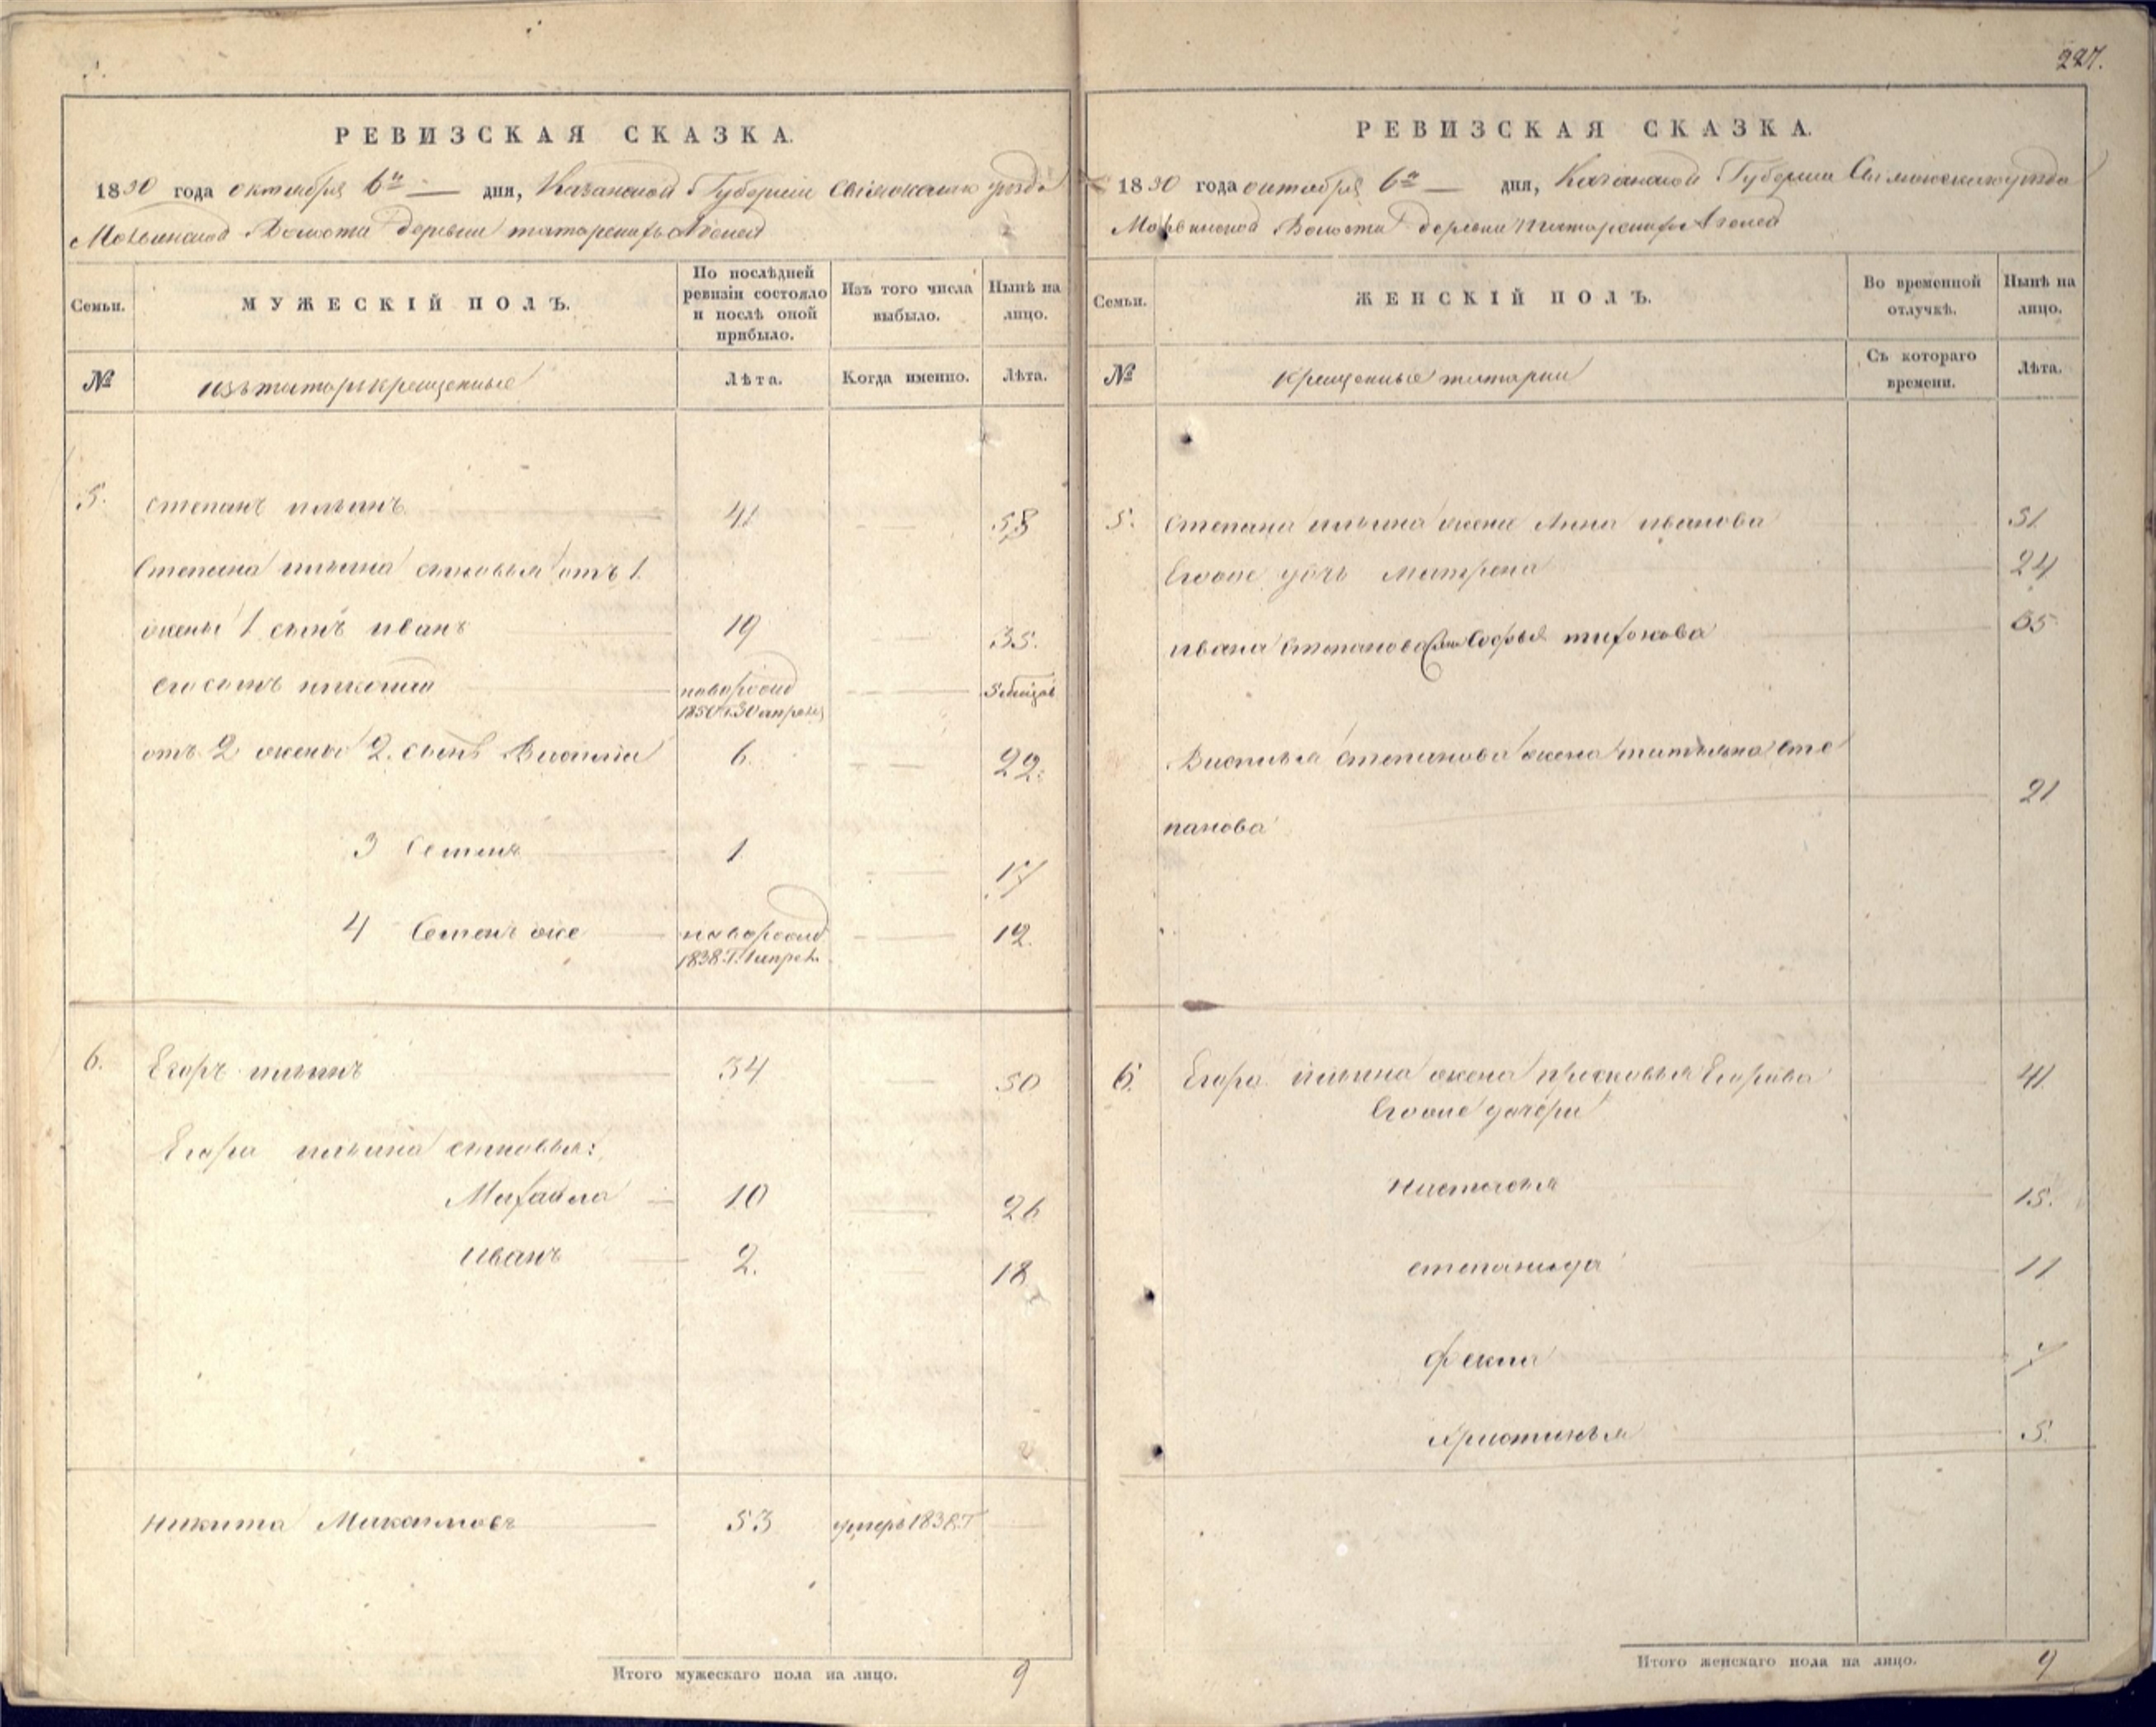 227.
РЕВИЗСКАЯ СКАЗКА.
1850 года октября 6го дня, Казанской Губернии Свiяжскаго уезда
Волости деревни
Семьи.
МУЖЕСКІЙ ПОЛЪ.
По послѣдней ревизіи состояло и послѣ оной прибыло.
Изъ того числа выбыло.
Нынѣ на лицо.
№
изъ татаръ крещенные
Лѣта.
Когда именно.
Лѣта.
5. Степанъ ильинъ 41 58
Степана ильина сыновья отъ 1.
жены 1 сынъ иванъ 19 35.
его сынъ новорожд 5 месяцов
1850 г. 30 апреля
отъ 2 жены 2. сынъ Василiй 6. 22.
3 Семенъ 1 17
4 Семенъ же новорожд 12.
1838. Г. апрел.
6. Егоръ ильинъ 34 50
Егора ильина сыновья:
Михайла 10 26
Иванъ 2. 18
никита Максимовъ 53 умеръ 1838. Г
Итого мужескаго пола на лицо. 9
РЕВИЗСКАЯ СКАЗКА.
1850 года октября 6го дня, Казанской Губернии Свiяжскаго уезда
Волости деревни
Семьи.
ЖЕНСКІЙ ПОЛЪ.
Во временной отлучкѣ.
Нынѣ на лицо.
№
крещенные татарки
Съ котораго времени.
Лѣта.
5. Степана ильина жена Анна иванова 51
Егоже дочь Матрена 24
ивана степанова жена Софья 35
Василья степанова жена татьяна сте
панова 21
6. Егора ильина жена прасковья Егорова 41.
Егоже дочери
настасья 15.
степанида 11
фекла 7
христинья 5.
Итого женскаго пола на лицо. 9